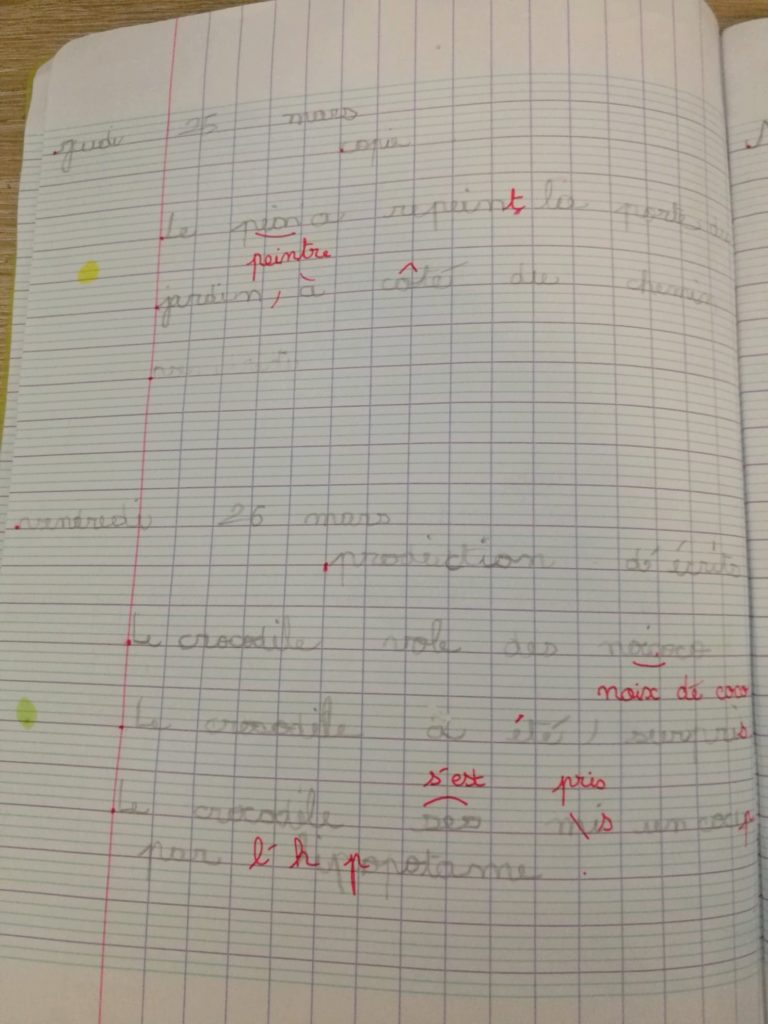 jeudi 25 mars
copie
Le pin a repeint la porte du
peintre
jardin, à côté du chemin
vendredi 26 mars
production d'écrits
Le crocodile vole des
noix de coco
Le crocodile à été, surpris
s'est pris
Le crocodile ses mis un coup
par l'hippopotame.